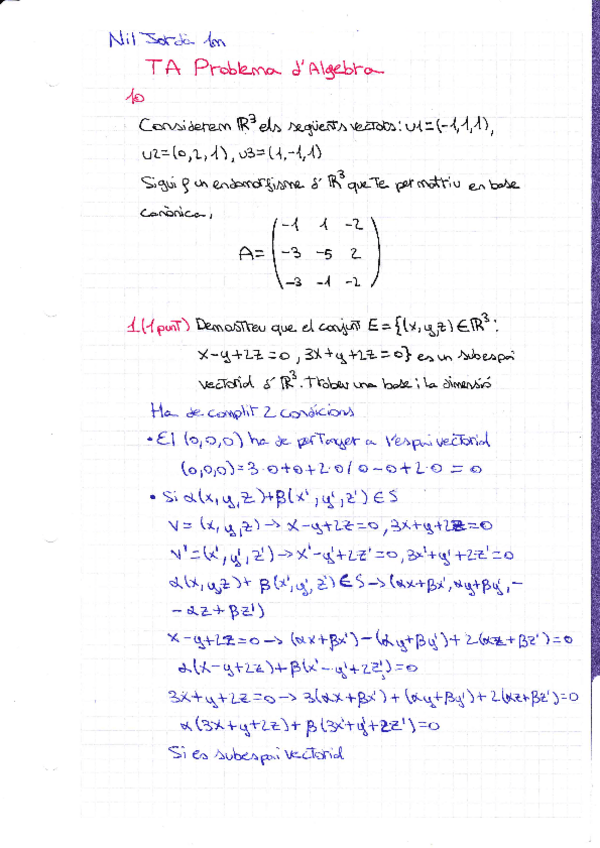 Nil Jordà 1m
TA Problema d'Algebra
1o
Considerem ℝ³ els següents vectors: u1=(-1,1,1),
u2=(0,2,1), u3=(1,-1,1)
Sigui f un endomorfisme d'ℝ³ que Te per matriu en base
canònica,
A= ( -1 1 -2
-3 -5 2
-3 -1 -2 )
1.(1 punt) Demostreu que el conjunt E={(x,y,z)∈ℝ³:
x-y+2z=0, 3x+y+2z=0} es un subespai
vectorial d'ℝ³. Trobeu una base i la dimensió
Ha de complit 2 condicions
• El (0,0,0) ha de pertanyer a l'espai vectorial
(0,0,0)=3·0+0+2·0/0-0+2·0=0
• Si α(x,y,z)+β(x',y',z')∈S
V=(x,y,z)→x-y+2z=0, 3x+y+2z=0
V'=(x',y',z')→x'-y'+2z'=0, 3x'+y'+2z'=0
α(x,y,z)+β(x',y',z')∈S→(αx+βx', αy+βy',-
-αz+βz')
x-y+2z=0→(αx+βx')-(αy+βy')+2(αz+βz')=0
α(x-y+2z)+β(x'-y'+2z')=0
3x+y+2z=0→3(αx+βx')+(αy+βy')+2(αz+βz')=0
α(3x+y+2z)+β(3x'+y'+2z')=0
Si es subespai vectorial